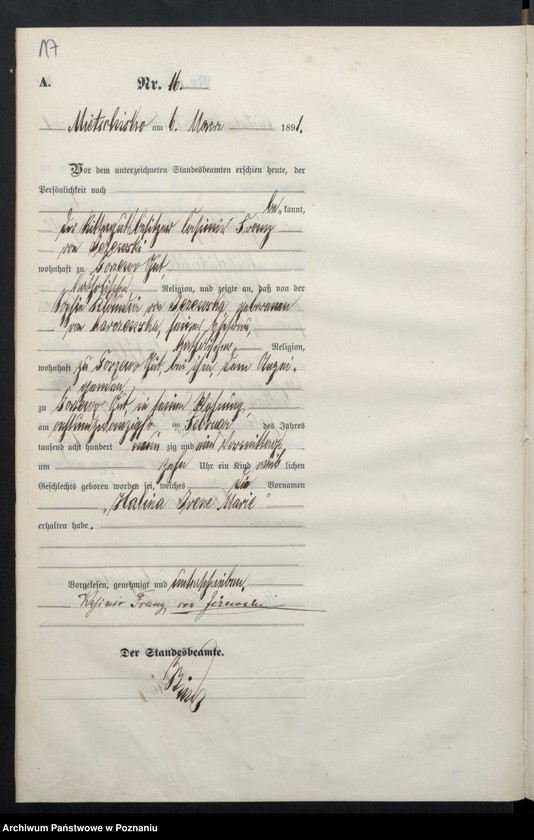 17
A.
Nr. 16.
Mietschisko am 6. März 1891.
Vor dem unterzeichneten Standesbeamten erschien heute, der
Persönlichkeit nach
be kannt,
der Rittergutsbesitzer Casimir Franz
von
wohnhaft zu Gut,
katholischer Religion, und zeigte an, daß von der
Sophie von geborenen
von seiner Ehefrau,
katholischer Religion,
wohnhaft zu Gut, bei ihm, dem Anzei-
genden
zu Gut in seiner Wohnung,
am achtundzwanzigsten im Februar des Jahres
tausend acht hundert neun zig und eins Vormittags
um zehn Uhr ein Kind weib lichen
Geschlechts geboren worden sei, welches die Vornamen
„Halina Irene Marie"
erhalten habe.
Vorgelesen, genehmigt und unterschrieben.
Kasimir Franz von
Der Standesbeamte.
Archiwum Państwowe w Poznaniu